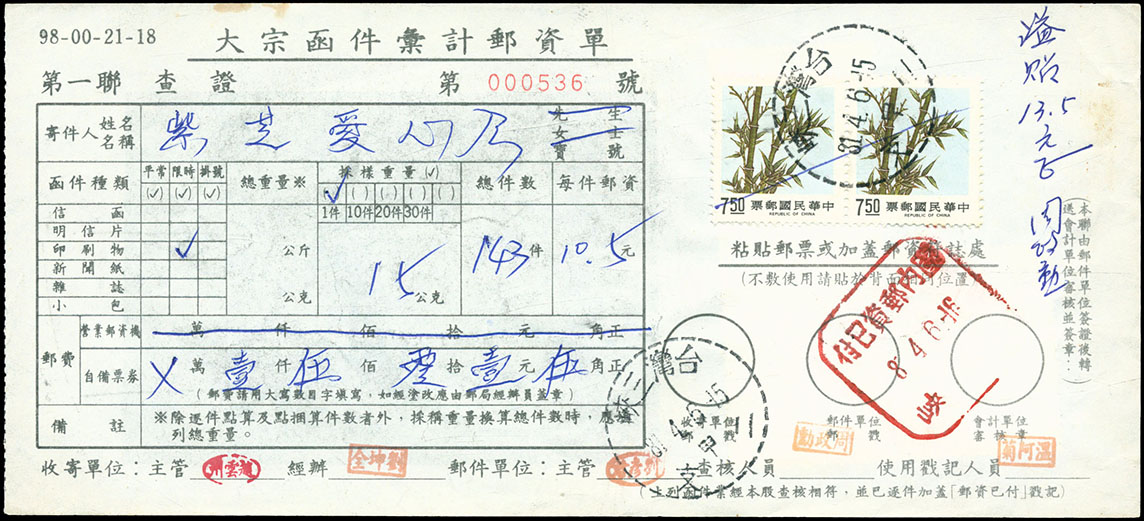 98-00-21-18
大宗函件彙計郵資單
第一聯 查證 第 000536 號
寄件人 姓名 名稱 紫芝愛心 先生 女士 寶號
函件種類 平常 限時 掛號 總重量※ 採樣重量(✓) 總件數 每件郵資
(✓) (✓) (✓) ( ) ( ) ( )
1件 10件 20件 30件
信函
明信片
印刷物 ✓ 公斤 15 公克 143 件 10.5 元
新聞紙
雜誌 公克
小包
郵費 營業郵資機 萬 仟 佰 拾 元 角正
自備票券 萬 壹 仟 伍 佰 零 拾 壹 元 伍 角正
(郵費請用大寫數目字填寫,如經塗改應由郵局經辦員蓋章)
備註 ※除逐件點算及點捆算件數者外,採稱重量換算總件數時,應填列總重量。
收寄單位:主管 經辦 郵件單位:主管 查核人員 使用戳記人員
(上列函件業經本股查核相符,並已逐件加蓋「郵資已付」戳記)
台灣
81.4.6.-15
7.50 中華民國郵票
REPUBLIC OF CHINA
7.50 中華民國郵票
REPUBLIC OF CHINA
粘貼郵票或加蓋郵資 誌處
(不敷使用請貼於背面相同位置)
國內郵資已付
8 4 6
峽
台灣
81.4.6.-15
收寄單位 戳
郵件單位 郵戳
會計單位 審核章
周政勳
溫阿菊
劉坤全
溢貼13.5元
本聯由郵件單位簽證後轉送會計單位審核並簽章: